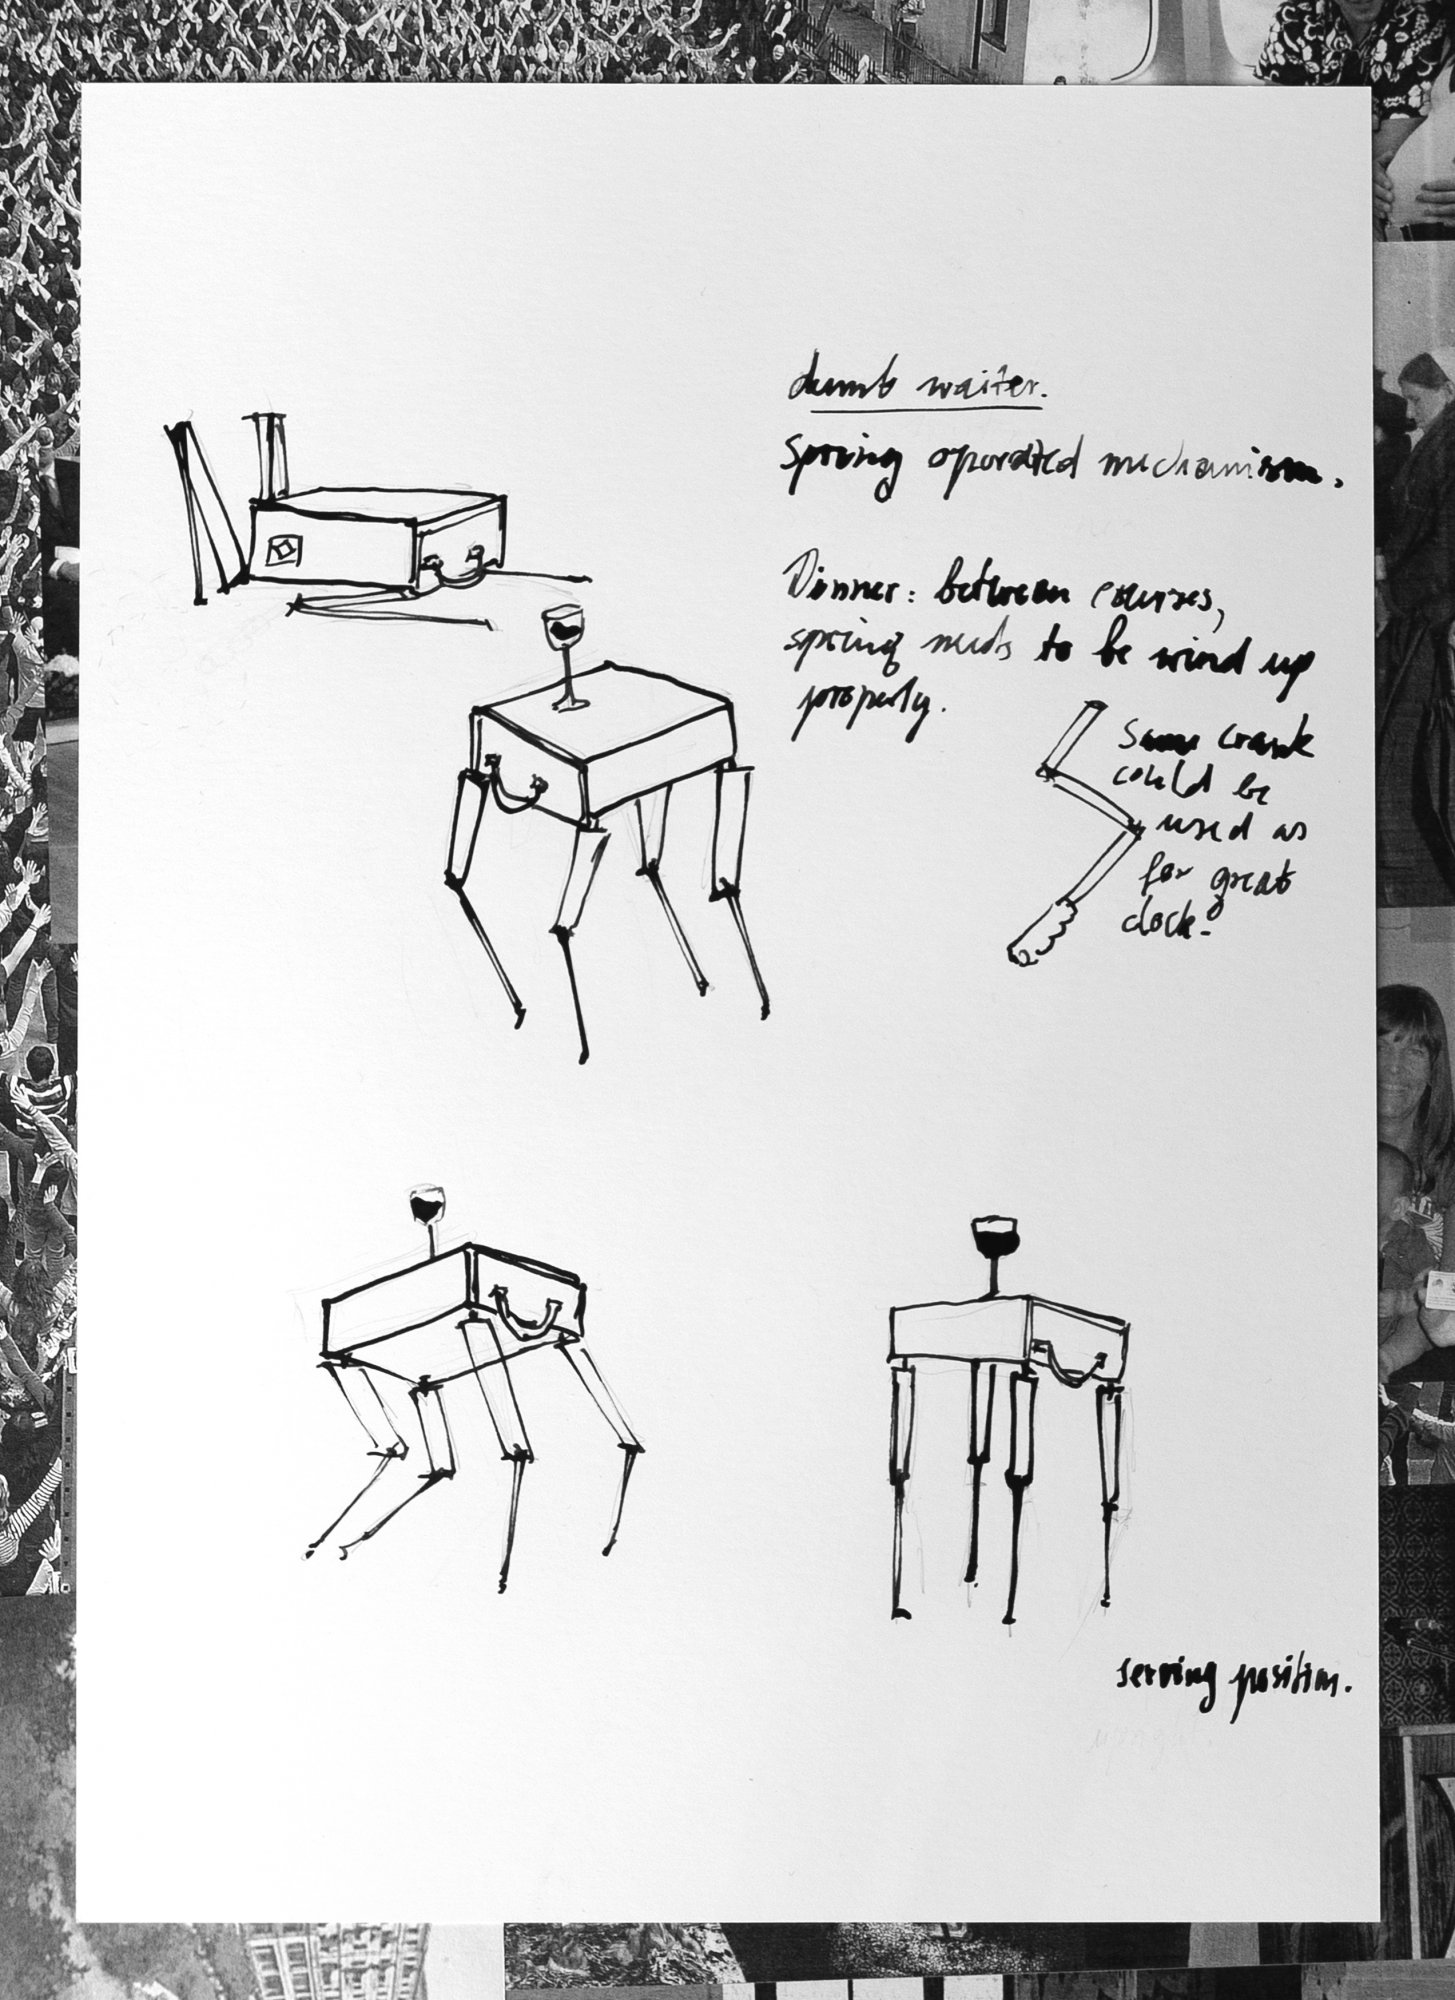 dumb waiter.
Spring operated mechanism.
Dinner: between courses,
spring needs to be wind up
properly.
Same crank
could be
used as
for great
clock.
serving position.